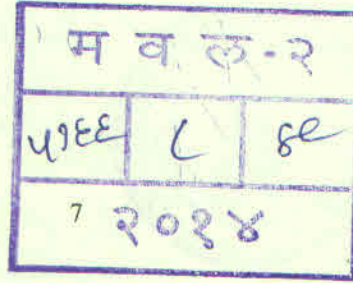 म व ल-२
५१६६ ८ ४९
7 २०१४